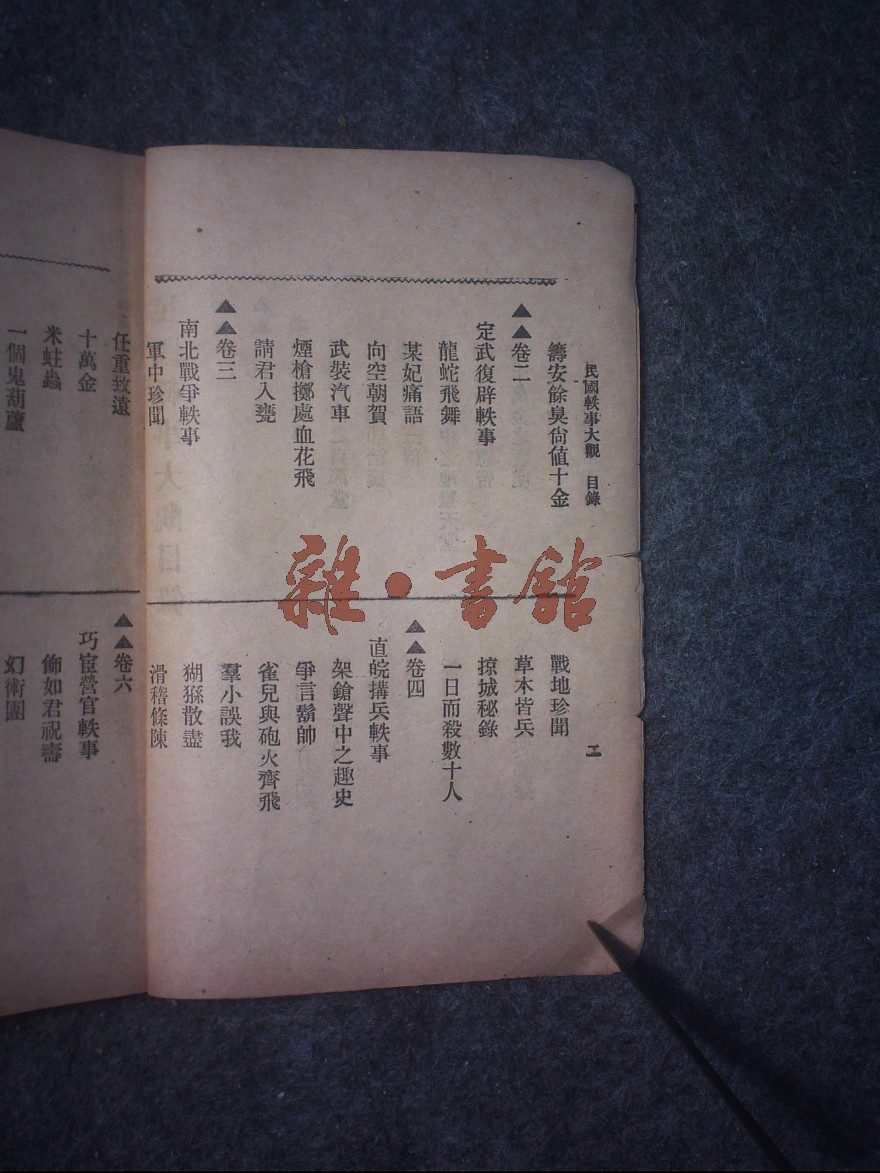 民國軼事大觀 目錄
二
籌安餘臭尙値十金
▲▲卷二
定武復辟軼事
龍蛇飛舞
某妃痛語
向空朝賀
武裝汽車
煙槍擲處血花飛
請君入甕
▲▲卷三
南北戰爭軼事
軍中珍聞
戰地珍聞
草木皆兵
掠城秘錄
一日而殺數十人
▲▲卷四
直皖搆兵軼事
架鎗聲中之趣史
爭言鬍帥
雀兒與砲火齊飛
羣小誤我
猢猻散盡
滑稽條陳
任重致遠
十萬金
米蛀蟲
一個鬼葫蘆
▲▲卷六
巧宦營官軼事
飾如君祝壽
幻術團
雜·書館